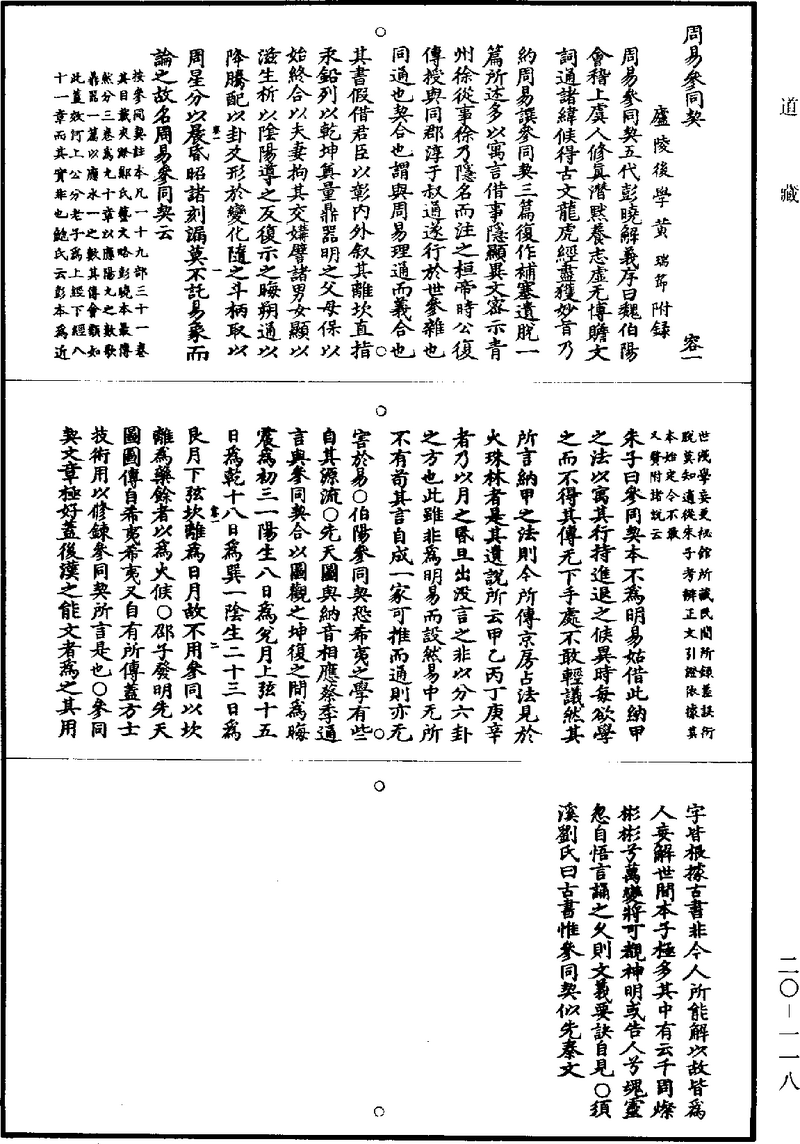 道藏
二〇-一一八
周易參同契　容一
廬陵後學黃瑞節附錄
周易參同契五代彭曉解義序曰魏伯陽
會稽上虞人修真潛默養志虛无博贍文
詞通諸緯候得古文龍虎經盡獲妙旨乃
約周易譔參同契三篇復作補塞遺脫一
篇所述多以寓言借事隱顯異文密示青
州徐從事徐乃隱名而注之桓帝時公復
傳授與同郡淳于叔通遂行於世參雜也
同通也契合也謂與周易理通而義合也
其書假借君臣以彰內外叙其離坎直指
汞鉛列以乾坤奠量鼎器明之父母保以
始終合以夫妻拘其交媾譬諸男女顯以
滋生析以陰陽導之反復示之晦朔通以
降騰配以卦爻形於變化隨之斗柄取以
周星分以晨昏昭諸刻漏莫不託易象而
論之故名周易參同契云
按參同契註本凡一十九部三十一卷
其目載夾漈鄭氏藝文略彭曉本最傳
然分三卷為九十章以應陽九之數歌
鼎器一篇以應水一之數其傳會類如
此蓋效河上公分老子為上經下經八
十一章而其實非也鮑氏云彭本為近
世淺學妄更秘館所藏民間所録差誤衍
脫莫知適從朱子考辨正文引證依據其
本始定今不敢
又贅附諸說云
朱子曰參同契本不為明易姑借此納甲
之法以寓其行持進退之候異時每欲學
之而不得其傳无下手處不敢輕議然其
所言納甲之法則今所傳京房占法見於
火珠林者是其遺說所云甲乙丙丁庚辛
者乃以月之昏旦出没言之非以分六卦
之方也此雖非為明易而設然易中无所
不有苟其言自成一家可推而通則亦无
害於易〇伯陽參同契恐希夷之學有些
自其源流〇先天圖與納音相應蔡季通
言與參同契合以圖觀之坤復之間為晦
震為初三一陽生八日為兌月上弦十五
日為乾十八日為巽一陰生二十三日為
艮月下弦坎離為日月故不用參同以坎
離為藥餘者以為火候〇邵子發明先天
圖圖傳自希夷希夷又自有所傳蓋方士
技術用以修鍊參同契所言是也〇參同
契文章極好蓋後漢之能文者為之其用
字皆根據古書非今人所能解以故皆為
人妄解世間本子極多其中有云千周燦
彬彬兮萬變將可覩神明或告人兮魂靈
忽自悟言誦之久則文義要訣自見〇須
溪劉氏曰古書惟參同契似先秦文